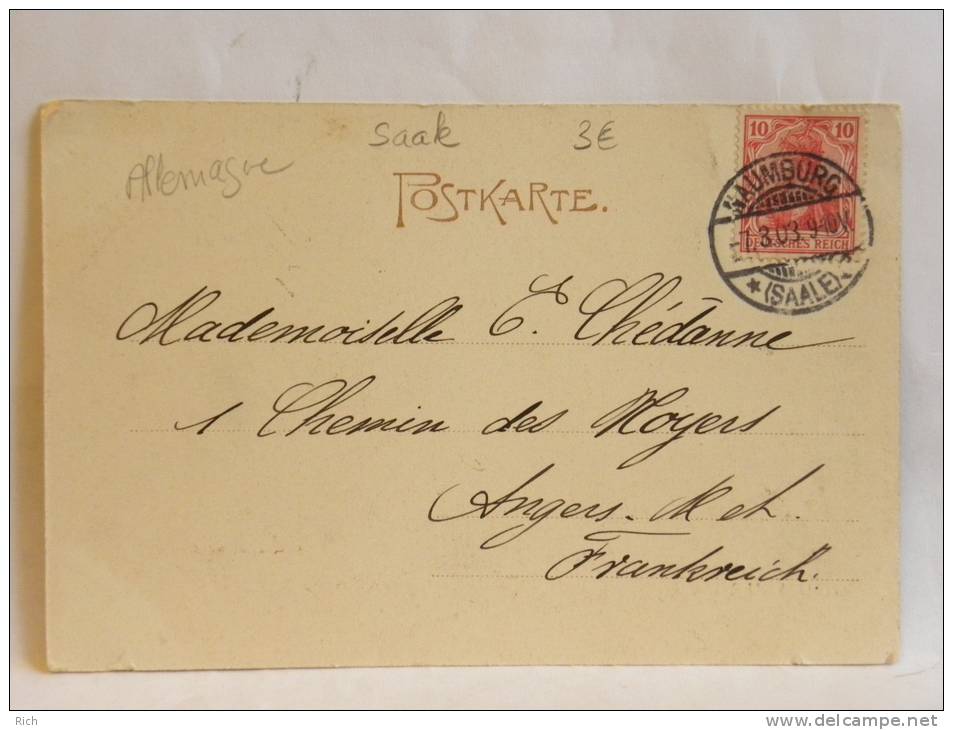 Allemagne
Saale
3€
POSTKARTE.
10 10
NAUMBURG
1.3.03. 9-10V.
DEUTSCHES REICH
★ (SAALE)
Mademoiselle E. Chédanne
1 Chemin des Noyers
Angers. M et L.
Frankreich.
Rich
www.delcampe.net